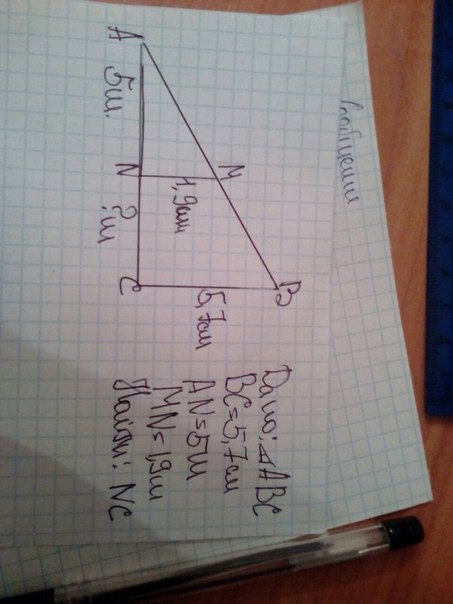 A
5м.
N
?м
C
M
1,9см
B
5,7см
Дано: △ABC
BC=5,7см
AN=5м
MN=1,9м
Найти: NC
сообщении